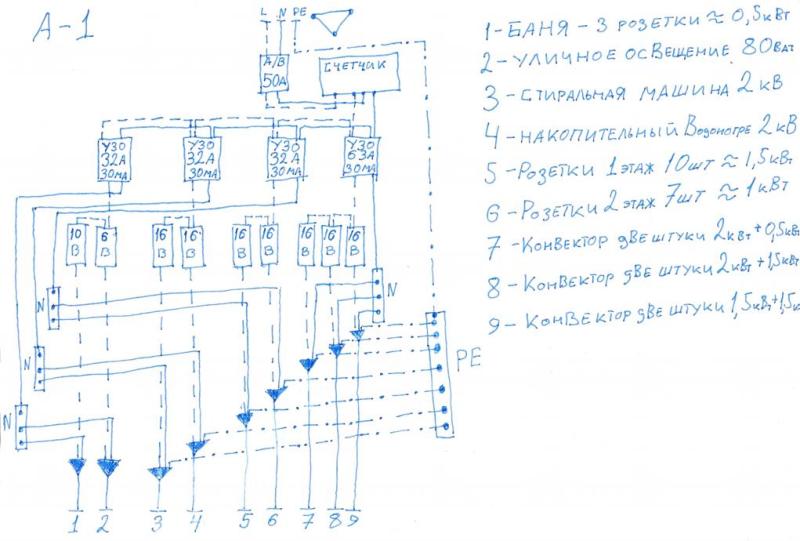 А-1
L N PE
А/В
50А
СЧЕТЧИК
УЗО
32А
30мА
УЗО
32А
30мА
УЗО
32А
30мА
УЗО
63А
30мА
10
В
6
В
16
В
16
В
16
В
16
В
16
В
16
В
16
В
N
N
N
N
PE
1 2 3 4 5 6 7 8 9
1-БАНЯ-3 РОЗЕТКИ ≈ 0,5кВт
2-УЛИЧНОЕ ОСВЕЩЕНИЕ 80Ват
3-СТИРАЛЬНАЯ МАШИНА 2кВ
4-НАКОПИТЕЛЬНЫЙ Водоногре 2кВ
5-Розетки 1 этаж 10шт ≈ 1,5кВт
6-Розетки 2 этаж 7шт ≈ 1кВт
7-Конвектор две штуки 2кВт+0,5кВт
8-Конвектор две штуки 2кВт+1,5кВт
9-Конвектор две штуки 1,5кВт+1,5к